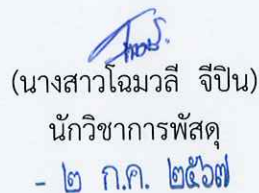 (นางสาวโฉมวลี จีปิน)
นักวิชาการพัสดุ
- ๒ ก.ค. ๒๕๖๗